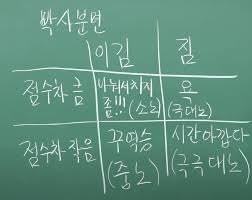 박사분면
이김 짐
점수차 큼 바눠서치지 욕
좀!!! (소노) (극대노)
점수차 작음 꾸역승 시간아깝다
(중노) (극극대노)